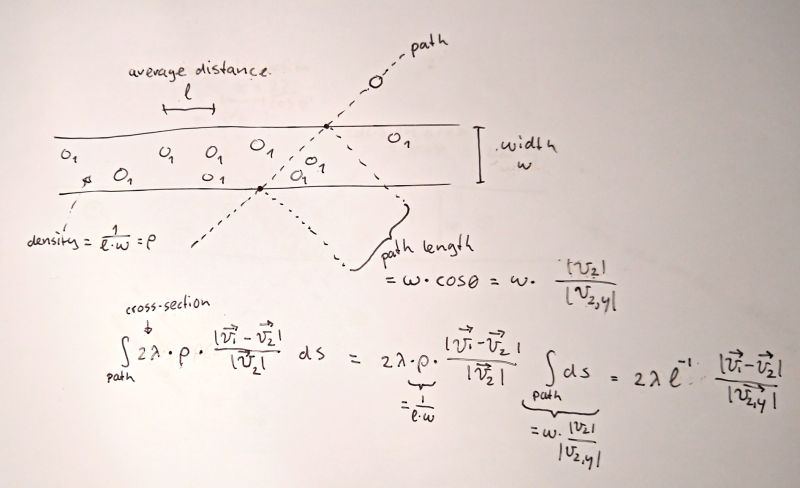 path
average distance
l
O₁ O₁ O₁ O₁ O₁ O₁
O₁ O₁ O₁
width
w
density = 1/(l·w) = ρ
path length
= w · cosθ = w · |v₂|/|v₂,y|
cross-section
∫path 2λ · ρ · |v₁⃗ - v₂⃗|/|v₂⃗| ds = 2λ · ρ · |v₁⃗ - v₂⃗|/|v₂⃗| ∫path ds = 2λ l⁻¹ |v₁⃗ - v₂⃗|/|v₂,y⃗|
= 1/(l·w) = w · |v₂|/|v₂,y|